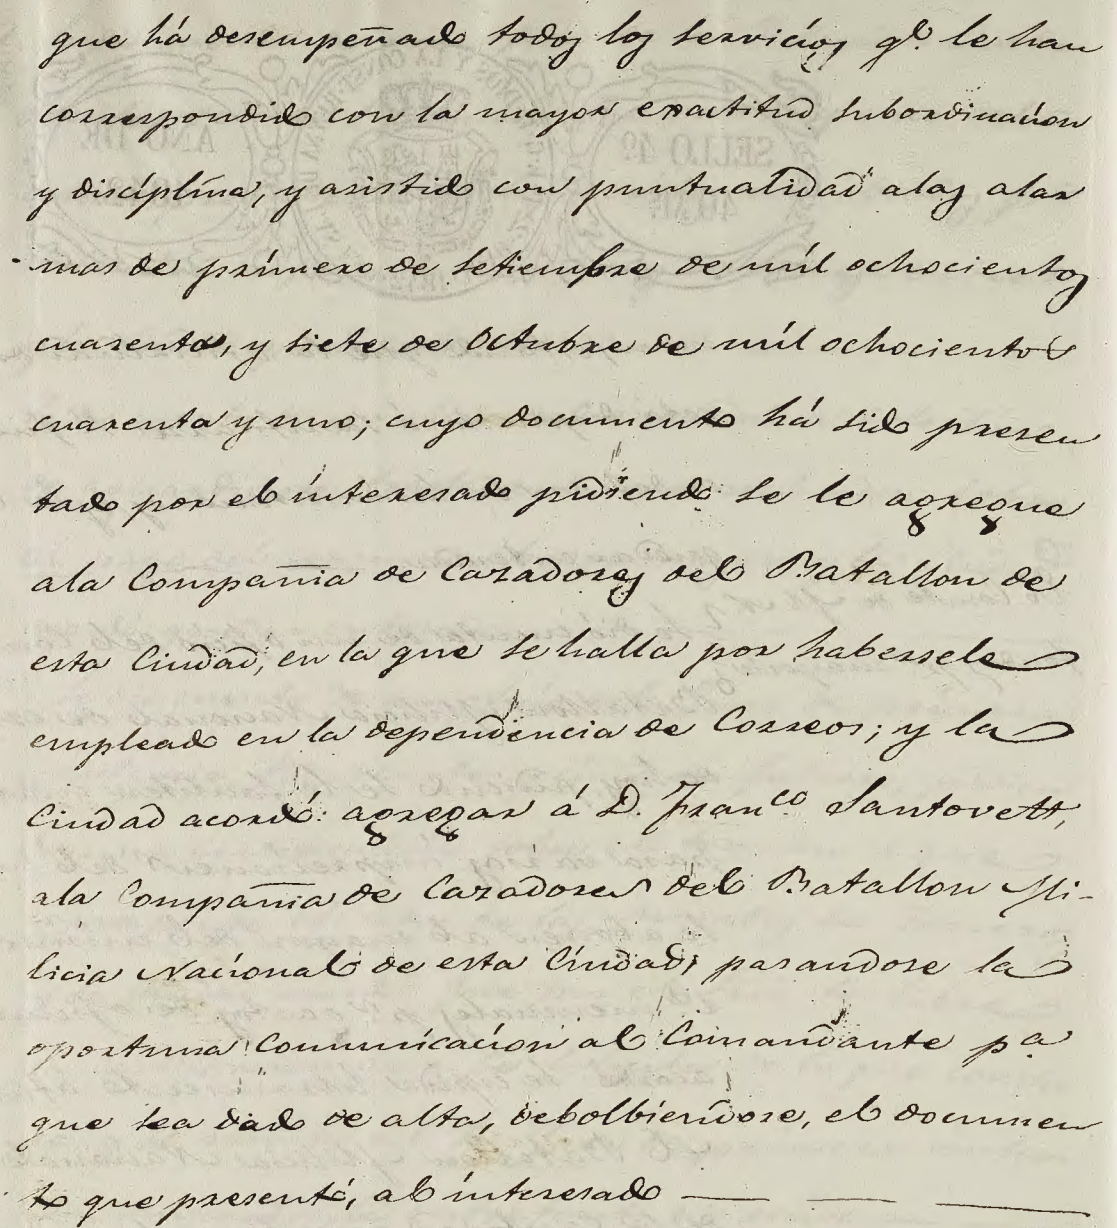 que há desempeñado todos los servicios qe. le han
correspondido con la mayor exactitud subordinacion
y disciplina, y asistido con puntualidad alas alar
mas de primero de Setiembre de mil ochocientos
cuarenta, y siete de Octubre de mil ochocientos
cuarenta y uno; cuyo documento há sido presen
tado por el interesado pidiendo se le agregue
ala Compañia de Cazadores del Batallon de
esta Ciudad, en la que se halla por habersele
empleado en la dependencia de Correos; y la
Ciudad acordó agregar á D. Franco. Santovett,
ala Compañia de Cazadores del Batallon Mi-
licia Nacional de esta Ciudad, pasandose la
oportuna Comunicacion al Comandante pa
que sea dado de alta, debolbiendose, el documen
to que presentó, al interesado
SELLO 4º
AÑO DE